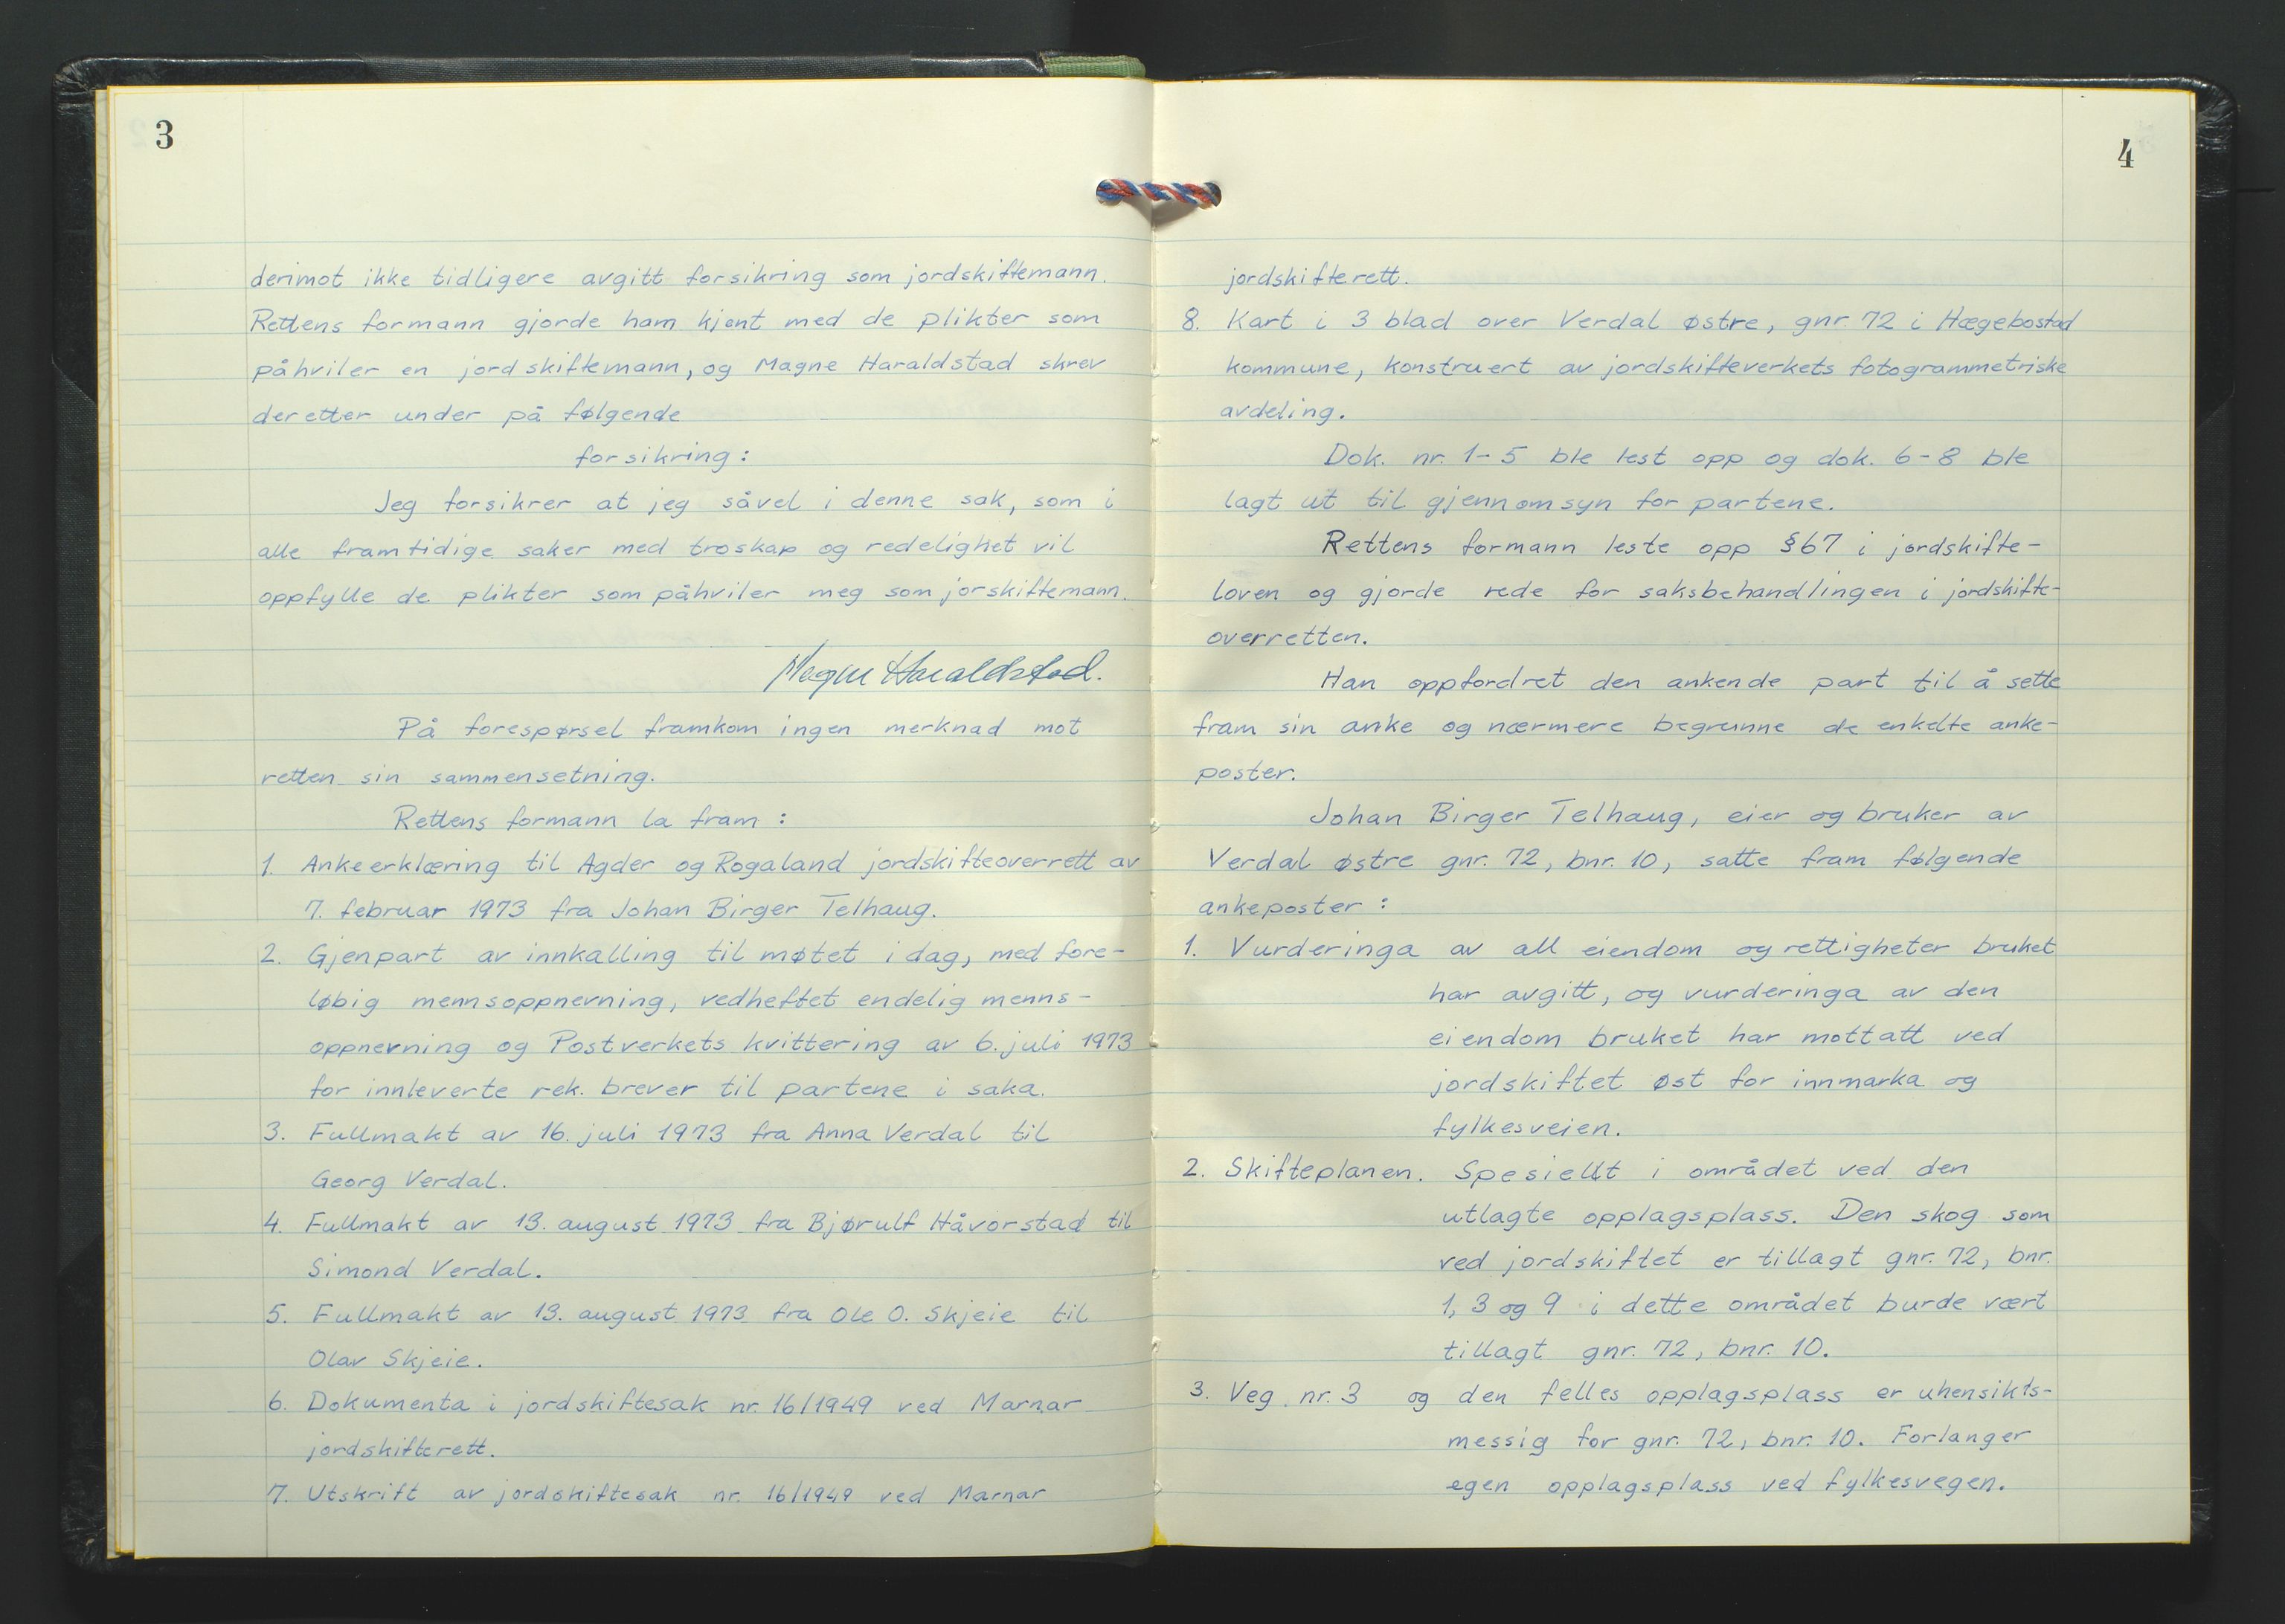 3
derimot ikke tidligere avgitt forsikring som jordskiftemann.
Rettens formann gjorde ham kjent med de plikter som
påhviler en jordskiftemann, og Magne Haraldstad skrev
deretter under på følgende
forsikring:
Jeg forsikrer at jeg såvel i denne sak, som i
alle framtidige saker med troskap og redelighet vil
oppfylle de plikter som påhviler meg som jorskiftemann.
Magne Haraldstad.
På forespørsel framkom ingen merknad mot
retten sin sammensetning.
Rettens formann la fram:
1. Ankeerklæring til Agder og Rogaland jordskifteoverrett av
7. februar 1973 fra Johan Birger Telhaug.
2. Gjenpart av innkalling til møtet i dag, med fore-
løbig mennsoppnevning, vedheftet endelig menns-
oppnevning og Postverkets kvittering av 6. juli 1973
for innleverte rek. brever til partene i saka.
3. Fullmakt av 16. juli 1973 fra Anna Verdal til
Georg Verdal.
4. Fullmakt av 13. august 1973 fra Bjørulf Håvorstad til
Simond Verdal.
5. Fullmakt av 13. august 1973 fra Ole O. Skjeie til
Olav Skjeie.
6. Dokumenta i jordskiftesak nr. 16/1949 ved Marnar
jordskifterett.
7. Utskrift av jordskiftesak nr. 16/1949 ved Marnar
4
jordskifterett.
8. Kart i 3 blad over Verdal østre, gnr. 72 i Hægebostad
kommune, konstruert av jordskifteverkets fotogrammetriske
avdeling.
Dok. nr. 1-5 ble lest opp og dok. 6-8 ble
lagt ut til gjennomsyn for partene.
Rettens formann leste opp §67 i jordskifte-
loven og gjorde rede for saksbehandlingen i jordskifte-
overretten.
Han oppfordret den ankende part til å sette
fram sin anke og nærmere begrunne de enkelte anke-
poster.
Johan Birger Telhaug, eier og bruker av
Verdal østre gnr. 72, bnr. 10, satte fram følgende
ankeposter:
1. Vurderinga av all eiendom og rettigheter bruket
har avgitt, og vurderinga av den
eiendom bruket har mottatt ved
jordskiftet øst for innmarka og
fylkesveien.
2. Skifteplanen. Spesiellt i området ved den
utlagte opplagsplass. Den skog som
ved jordskiftet er tillagt gnr. 72, bnr.
1, 3 og 9 i dette området burde vært
tillagt gnr. 72, bnr. 10.
3. Veg nr. 3 og den felles opplagsplass er uhensikts-
messig for gnr. 72, bnr. 10. Forlanger
egen opplagsplass ved fylkesvegen.